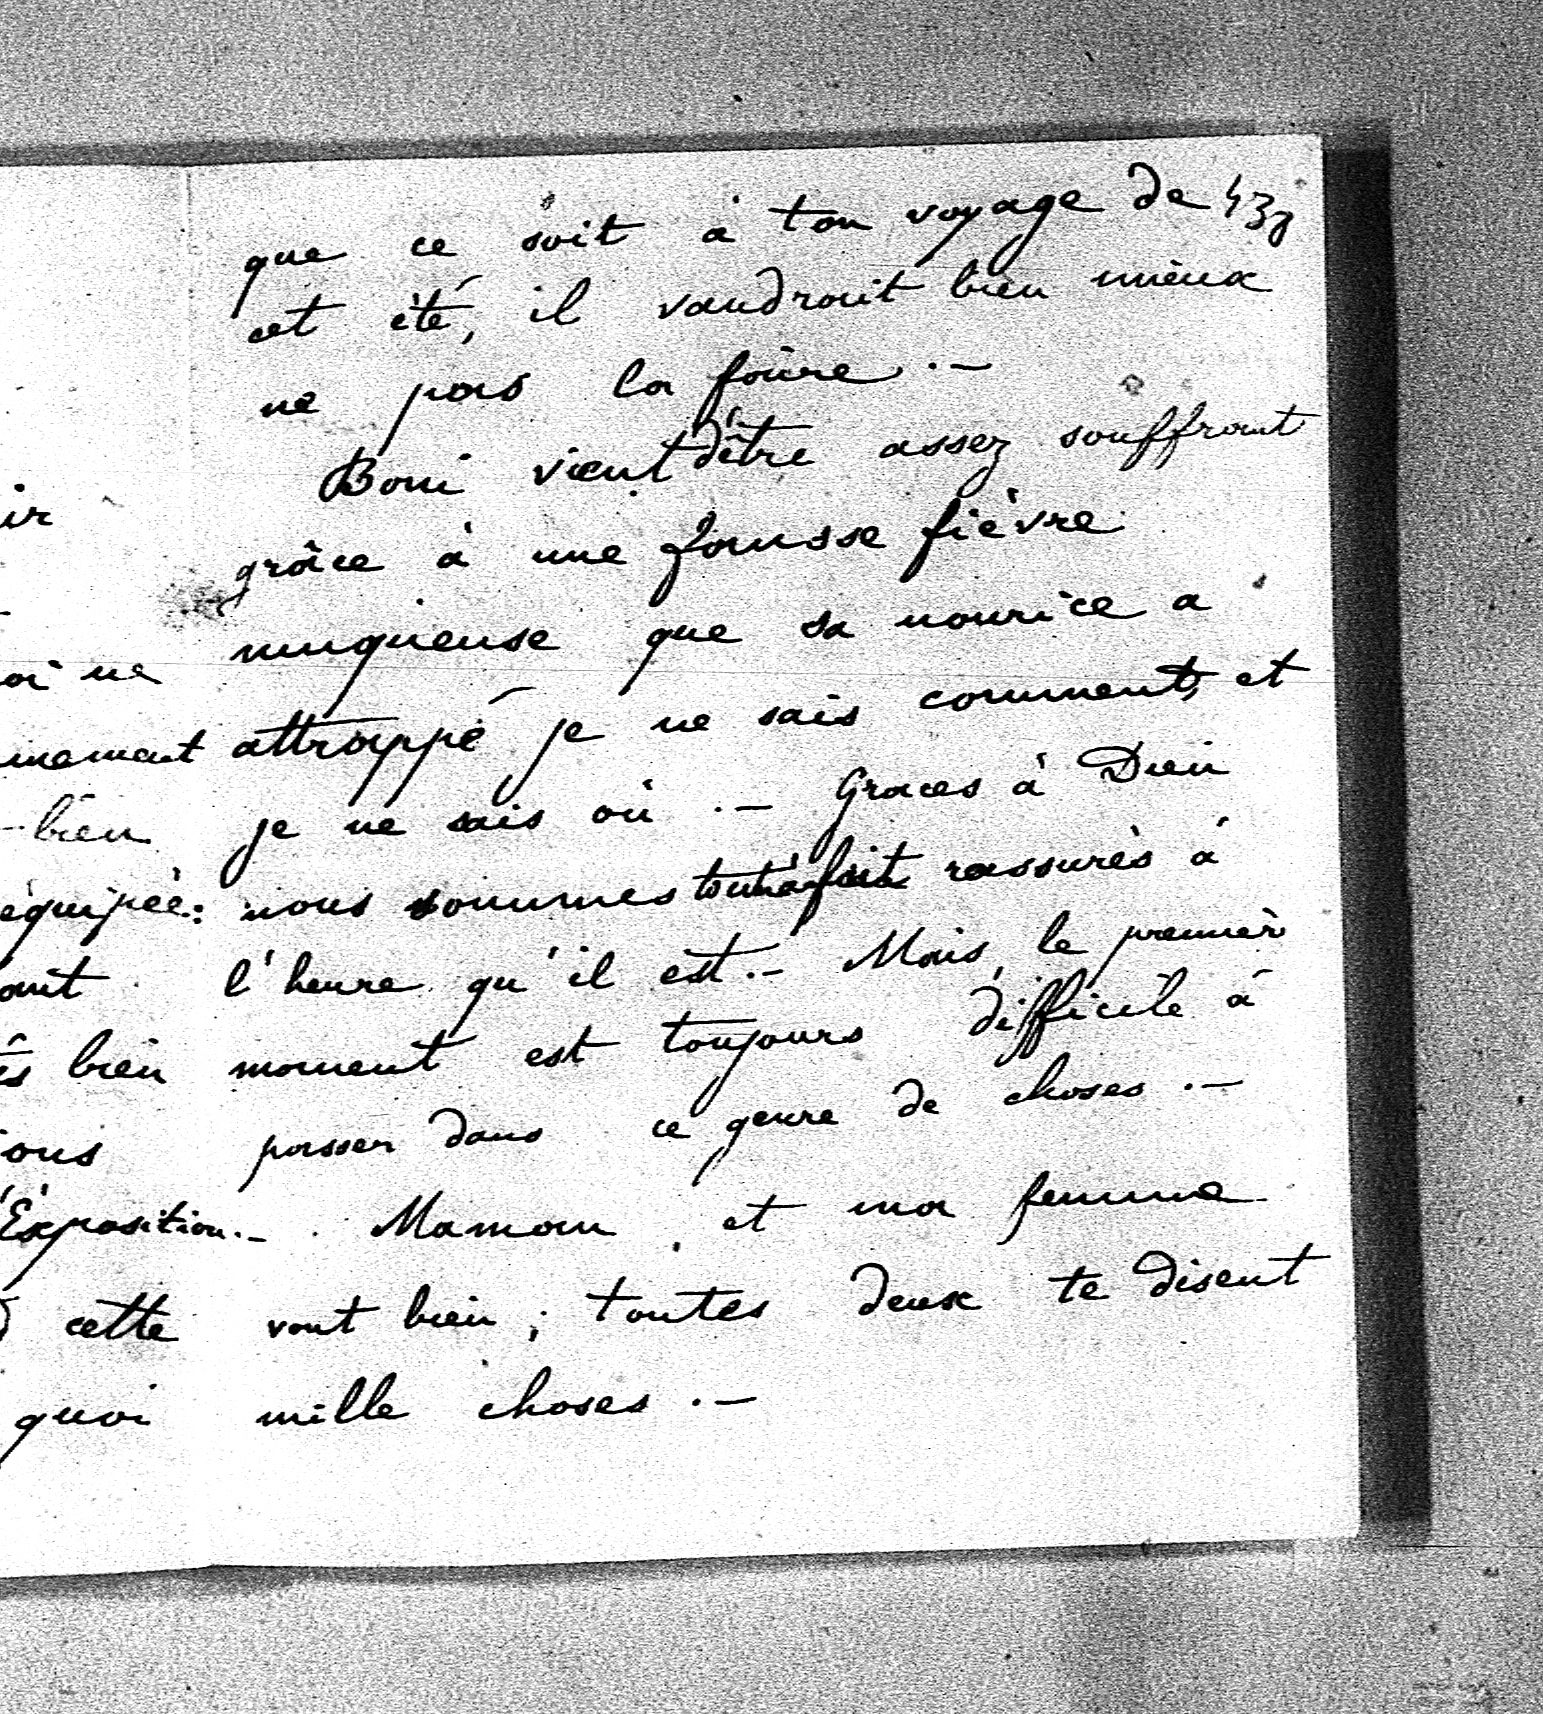 que ce soit à ton voyage de
cet été, il vaudrait bien mieux
ne pas la faire.—
Boni vient d'être assez souffrant
grâce à une fausse fièvre
muqueuse que sa nourice a
attrappé je ne sais comment, et
je ne sais où.— Graces à Dieu
nous sommes tout à fait rassurés à
l'heure qu'il est.— Mais, le premier
moment est toujours difficile à
passer dans ce genre de choses.—
Maman et ma femme
vont bien; toutes deux te disent
mille choses.—
ir
ne
nement
-bien
équipée:
ant
bien
ions
l'Exposition.—
cette
quoi